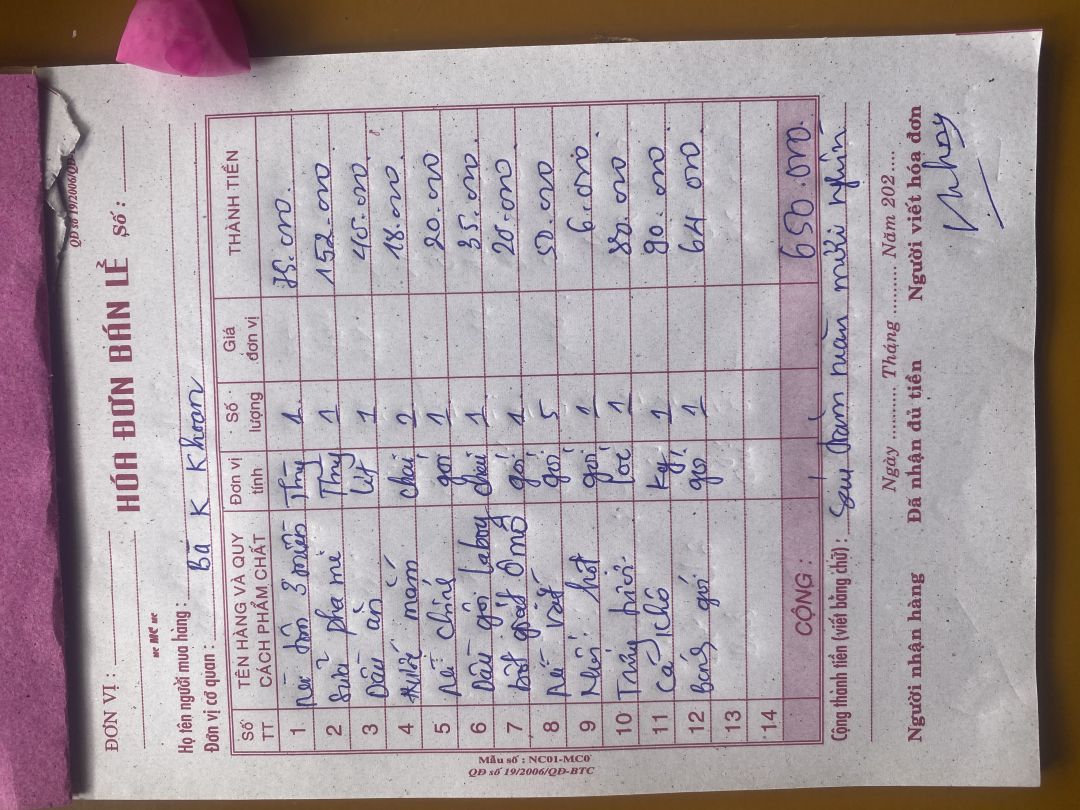 QĐ số 19/2006/QĐ
ĐƠN VỊ :
HÓA ĐƠN BÁN LẺ
Số :
Họ tên người mua hàng :
Đơn vị cơ quan : Bà K Khoan
Số TT | TÊN HÀNG VÀ QUY CÁCH PHẨM CHẤT | Đơn vị tính | Số lượng | Giá đơn vị | THÀNH TIỀN
1 Mì tôm 3 miền Thùng 1 75.000.
2 Sữa pha mè Thùng 1 152.000
3 Dầu ăn Lít 1 45.000
4 Nước mắm chai 2 18.000
5 Mì chính gói 1 20.000
6 Dầu gội chai 1 35.000
7 bột giặt Ômô gói 1 20.000
8 gói 5 50.000
9 gói 1 6.000
10 Trứng 1 80.000
11 Cá khô Kg 1 90.000
12 gói 1 64.000
13
14
CỘNG : 650.000.
Cộng thành tiền (viết bằng chữ) : Sáu trăm năm mươi nghìn
Ngày ........ Tháng ........ Năm 202....
Người nhận hàng
Đã nhận đủ tiền
Người viết hóa đơn
Mẫu số : NC01-MC0
QĐ số 19/2006/QĐ-BTC